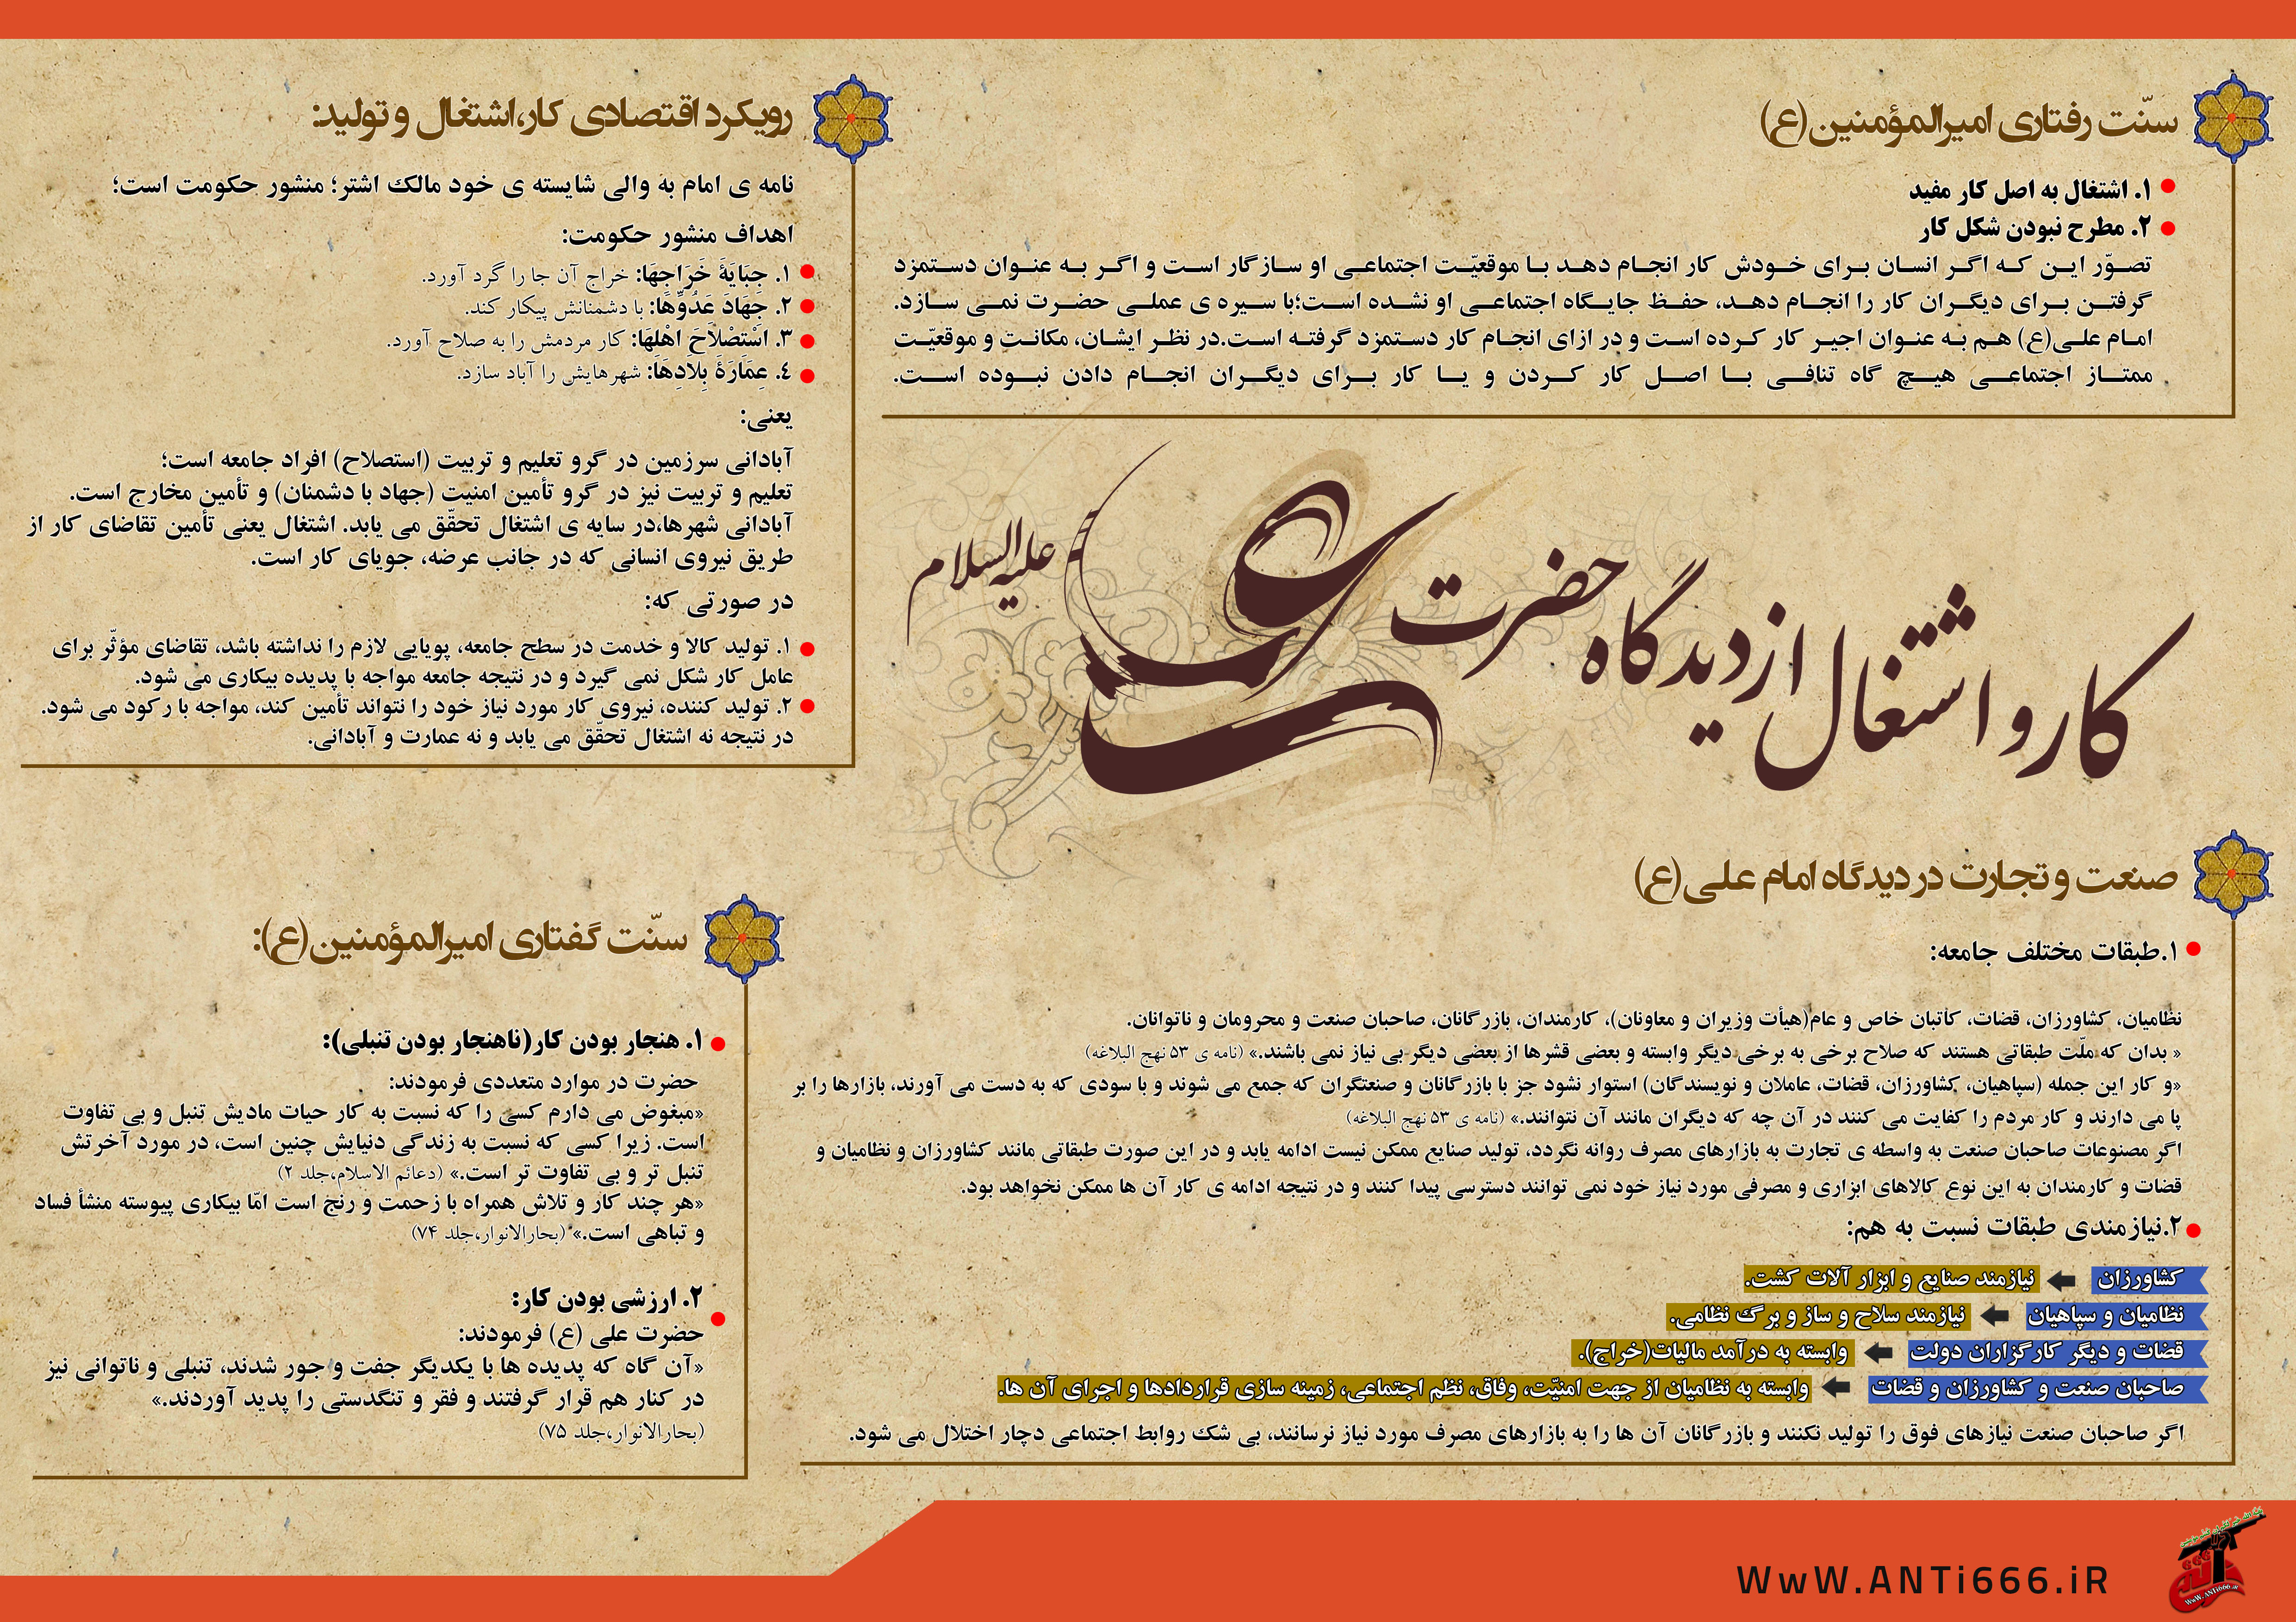 سنّت رفتاری امیرالمؤمنین(ع)
۱. اشتغال به اصل کار مفید
۲. مطرح نبودن شکل کار
تصوّر این که اگر انسان برای خودش کار انجام دهد با موقعیّت اجتماعی او سازگار است و اگر به عنوان دستمزد
گرفتن برای دیگران کار را انجام دهد، حفظ جایگاه اجتماعی او نشده است؛با سیره ی عملی حضرت نمی سازد.
امام علی(ع) هم به عنوان اجیر کار کرده است و در ازای انجام کار دستمزد گرفته است.در نظر ایشان، مکانت و موقعیّت
ممتاز اجتماعی هیچ گاه تنافی با اصل کار کردن و یا کار برای دیگران انجام دادن نبوده است.
رویکرد اقتصادی کار،اشتغال و تولید:
نامه ی امام به والی شایسته ی خود مالک اشتر؛ منشور حکومت است؛
اهداف منشور حکومت:
۱. جِبَایَةَ خَرَاجِهَا: خراج آن جا را گرد آورد.
۲. جِهَادَ عَدُوِّهَا: با دشمنانش پیکار کند.
۳. اسْتِصْلَاحَ اهْلِهَا: کار مردمش را به صلاح آورد.
٤. عِمَارَةَ بِلَادِهَا: شهرهایش را آباد سازد.
یعنی:
آبادانی سرزمین در گرو تعلیم و تربیت (استصلاح) افراد جامعه است؛
تعلیم و تربیت نیز در گرو تأمین امنیت (جهاد با دشمنان) و تأمین مخارج است.
آبادانی شهرها،در سایه ی اشتغال تحقّق می یابد. اشتغال یعنی تأمین تقاضای کار از
طریق نیروی انسانی که در جانب عرضه، جویای کار است.
در صورتی که:
۱. تولید کالا و خدمت در سطح جامعه، پویایی لازم را نداشته باشد، تقاضای مؤثّر برای
عامل کار شکل نمی گیرد و در نتیجه جامعه مواجه با پدیده بیکاری می شود.
۲. تولید کننده، نیروی کار مورد نیاز خود را نتواند تأمین کند، مواجه با رکود می شود.
در نتیجه نه اشتغال تحقّق می یابد و نه عمارت و آبادانی.
کار و اشتغال از دیدگاه حضرت علی علیه السلام
صنعت و تجارت در دیدگاه امام علی(ع)
۱.طبقات مختلف جامعه:
نظامیان، کشاورزان، قضات، کاتبان خاص و عام(هیأت وزیران و معاونان)، کارمندان، بازرگانان، صاحبان صنعت و محرومان و ناتوانان.
« بدان که ملّت طبقاتی هستند که صلاح برخی به برخی دیگر وابسته و بعضی قشرها از بعضی دیگر بی نیاز نمی باشند.» (نامه ی ۵۳ نهج البلاغه)
«و کار این جمله (سپاهیان، کشاورزان، قضات، عاملان و نویسندگان) استوار نشود جز با بازرگانان و صنعتگران که جمع می شوند و با سودی که به دست می آورند، بازارها را بر
پا می دارند و کار مردم را کفایت می کنند در آن چه که دیگران مانند آن نتوانند.» (نامه ی ۵۳ نهج البلاغه)
اگر مصنوعات صاحبان صنعت به واسطه ی تجارت به بازارهای مصرف روانه نگردد، تولید صنایع ممکن نیست ادامه یابد و در این صورت طبقاتی مانند کشاورزان و نظامیان و
قضات و کارمندان به این نوع کالاهای ابزاری و مصرفی مورد نیاز خود نمی توانند دسترسی پیدا کنند و در نتیجه ادامه ی کار آن ها ممکن نخواهد بود.
۲.نیازمندی طبقات نسبت به هم:
کشاورزان نیازمند صنایع و ابزار آلات کشت.
نظامیان و سپاهیان نیازمند سلاح و ساز و برگ نظامی.
قضات و دیگر کارگزاران دولت وابسته به درآمد مالیات(خراج).
صاحبان صنعت و کشاورزان و قضات وابسته به نظامیان از جهت امنیّت، وفاق، نظم اجتماعی، زمینه سازی قراردادها و اجرای آن ها.
اگر صاحبان صنعت نیازهای فوق را تولید نکنند و بازرگانان آن ها را به بازارهای مصرف مورد نیاز نرسانند، بی شک روابط اجتماعی دچار اختلال می شود.
سنّت گفتاری امیرالمؤمنین(ع):
۱. هنجار بودن کار(ناهنجار بودن تنبلی):
حضرت در موارد متعددی فرمودند:
«مبغوض می دارم کسی را که نسبت به کار حیات مادیش تنبل و بی تفاوت
است. زیرا کسی که نسبت به زندگی دنیایش چنین است، در مورد آخرتش
تنبل تر و بی تفاوت تر است.» (دعائم الاسلام،جلد ۲)
«هر چند کار و تلاش همراه با زحمت و رنج است امّا بیکاری پیوسته منشأ فساد
و تباهی است.» (بحارالانوار،جلد ۷۴)
۲. ارزشی بودن کار:
حضرت علی (ع) فرمودند:
«آن گاه که پدیده ها با یکدیگر جفت و جور شدند، تنبلی و ناتوانی نیز
در کنار هم قرار گرفتند و فقر و تنگدستی را پدید آوردند.»
(بحارالانوار،جلد ۷۵)
WwW.ANTi666.iR
WwW.ANTi666.iR